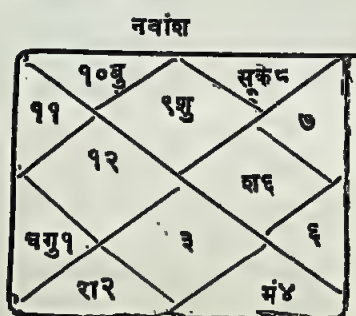 नवांश
१०बु सूके८
११ ९शु ७
१२ श६
चगु१ ३ ६
रा२ मं४